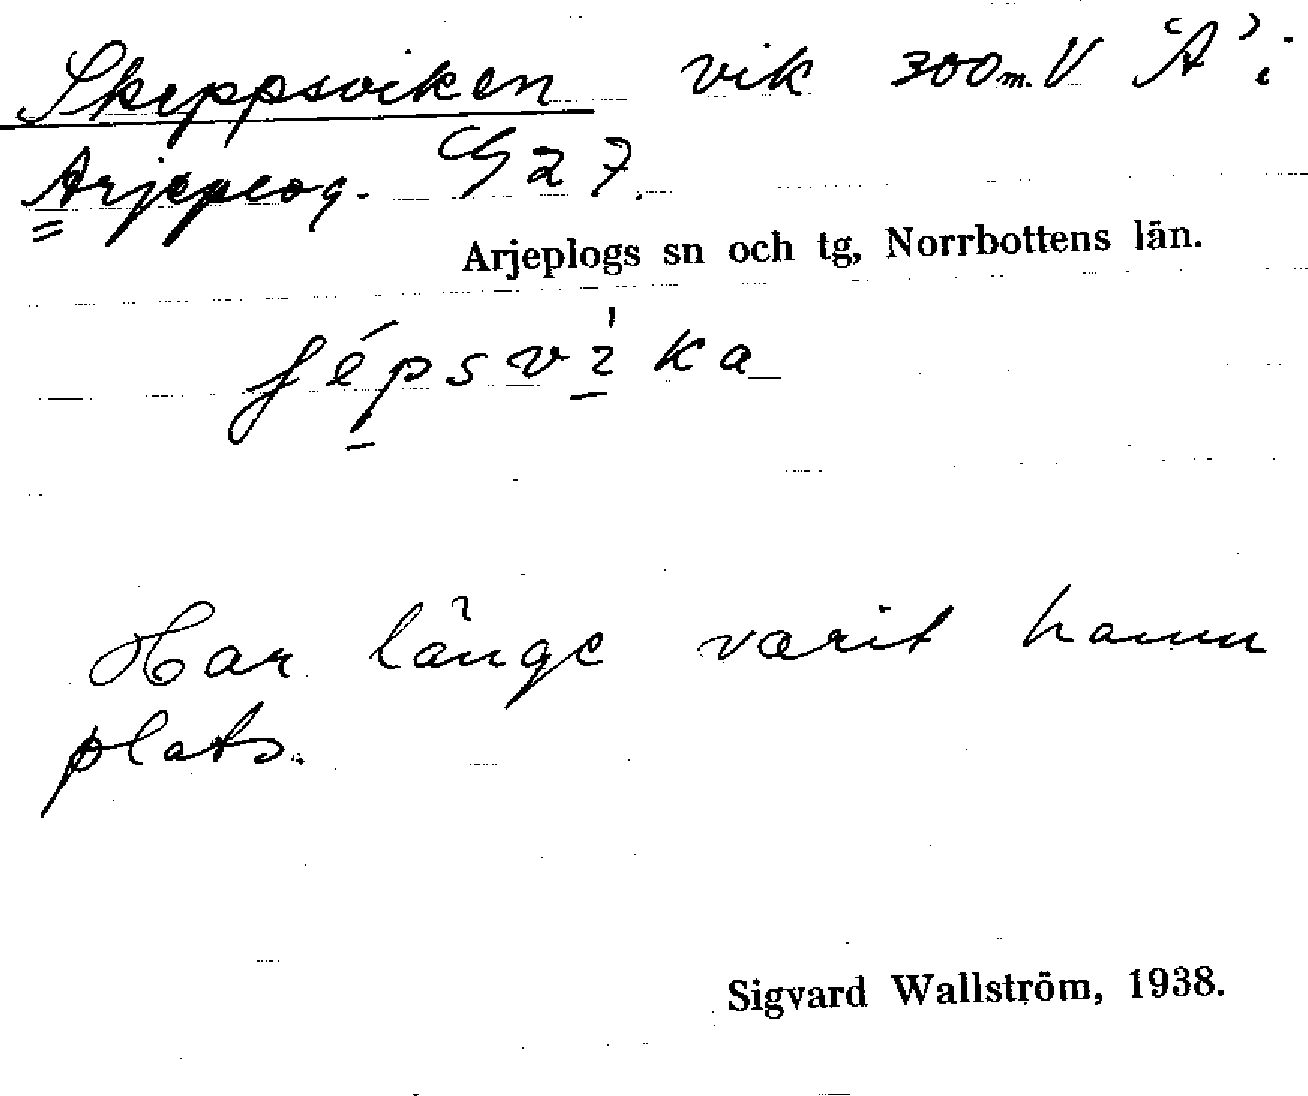 Skeppsviken vik 300 m. V "A" i
Arjeplog. G 27.
Arjeplogs sn och tg, Norrbottens län.
ʃépsvìka
Har länge varit hamn
plats.
Sigvard Wallström, 1938.